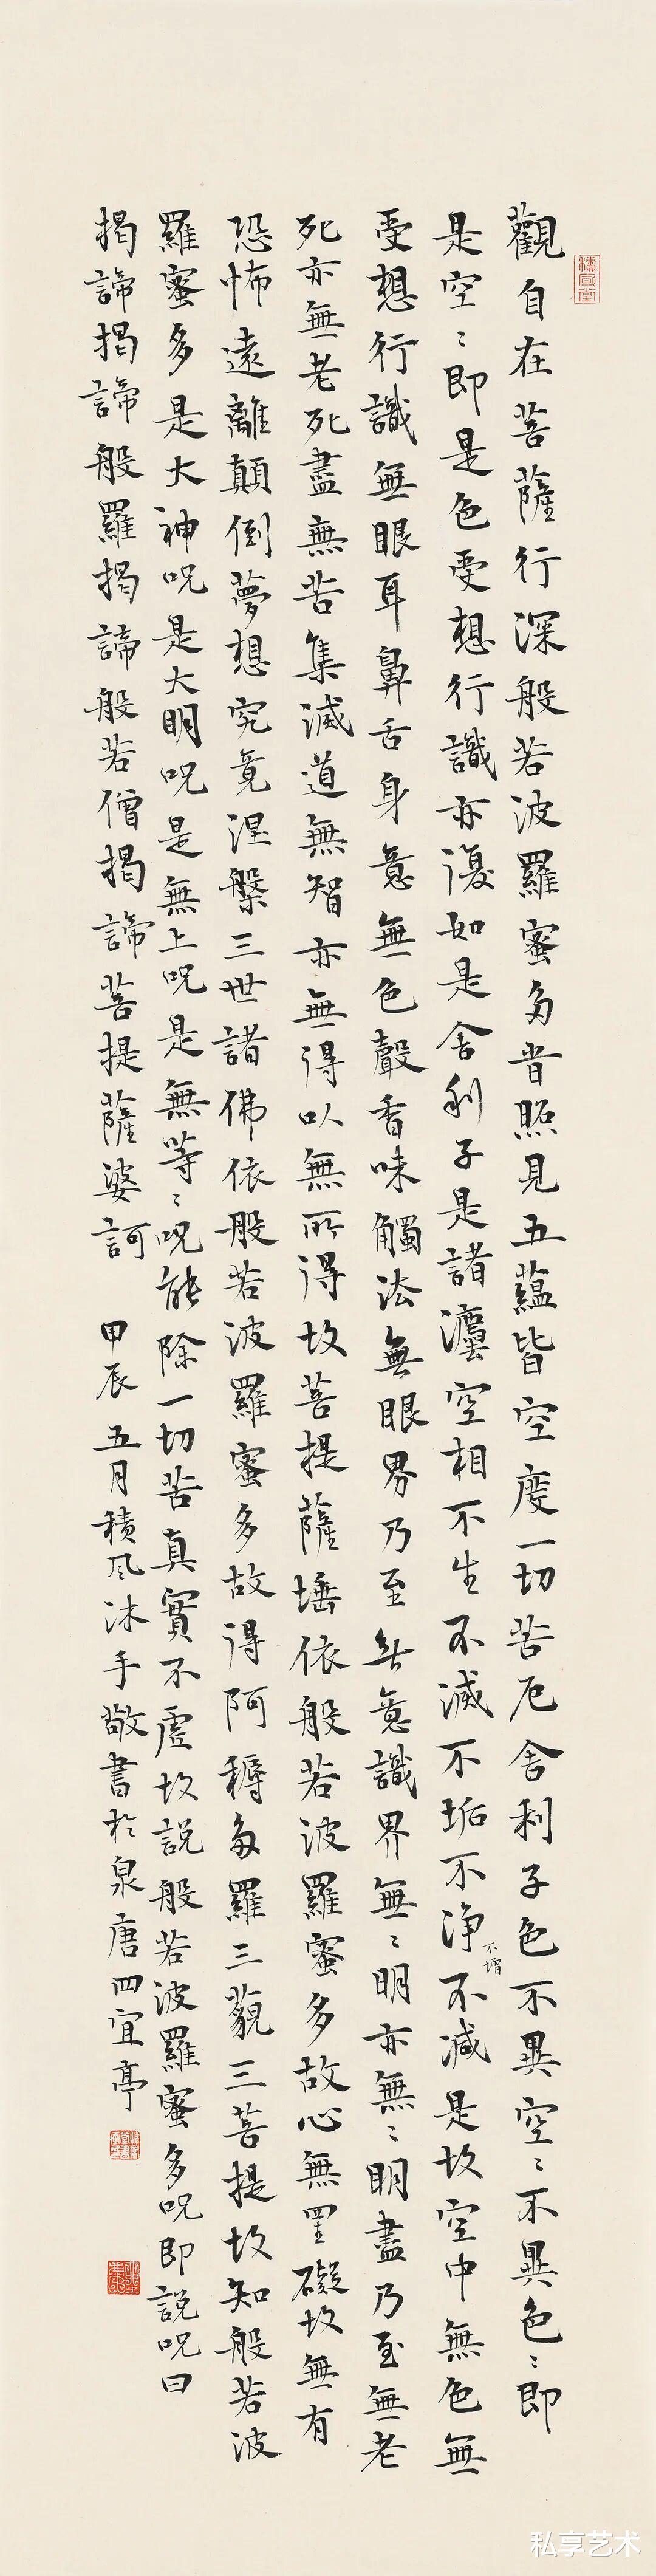 觀自在菩薩行深般若波羅蜜多時照見五蘊皆空度一切苦厄舍利子色不異空〻不異色〻即
是空〻即是色受想行識亦復如是舍利子是諸灋空相不生不滅不垢不淨不增不減是故空中無色無
受想行識無眼耳鼻舌身意無色聲香味觸法無眼界乃至無意識界無〻明亦無〻明盡乃至無老
死亦無老死盡無苦集滅道無智亦無得以無所得故菩提薩埵依般若波羅蜜多故心無罣礙故無有
恐怖遠離顛倒夢想究竟涅槃三世諸佛依般若波羅蜜多故得阿耨多羅三藐三菩提故知般若波
羅蜜多是大神呪是大明呪是無上呪是無等〻呪能除一切苦真實不虛故説般若波羅蜜多呪即説呪曰
揭諦揭諦般羅揭諦般若僧揭諦菩提薩婆訶
甲辰五月積風沐手敬書於泉唐四宜亭
私享艺术